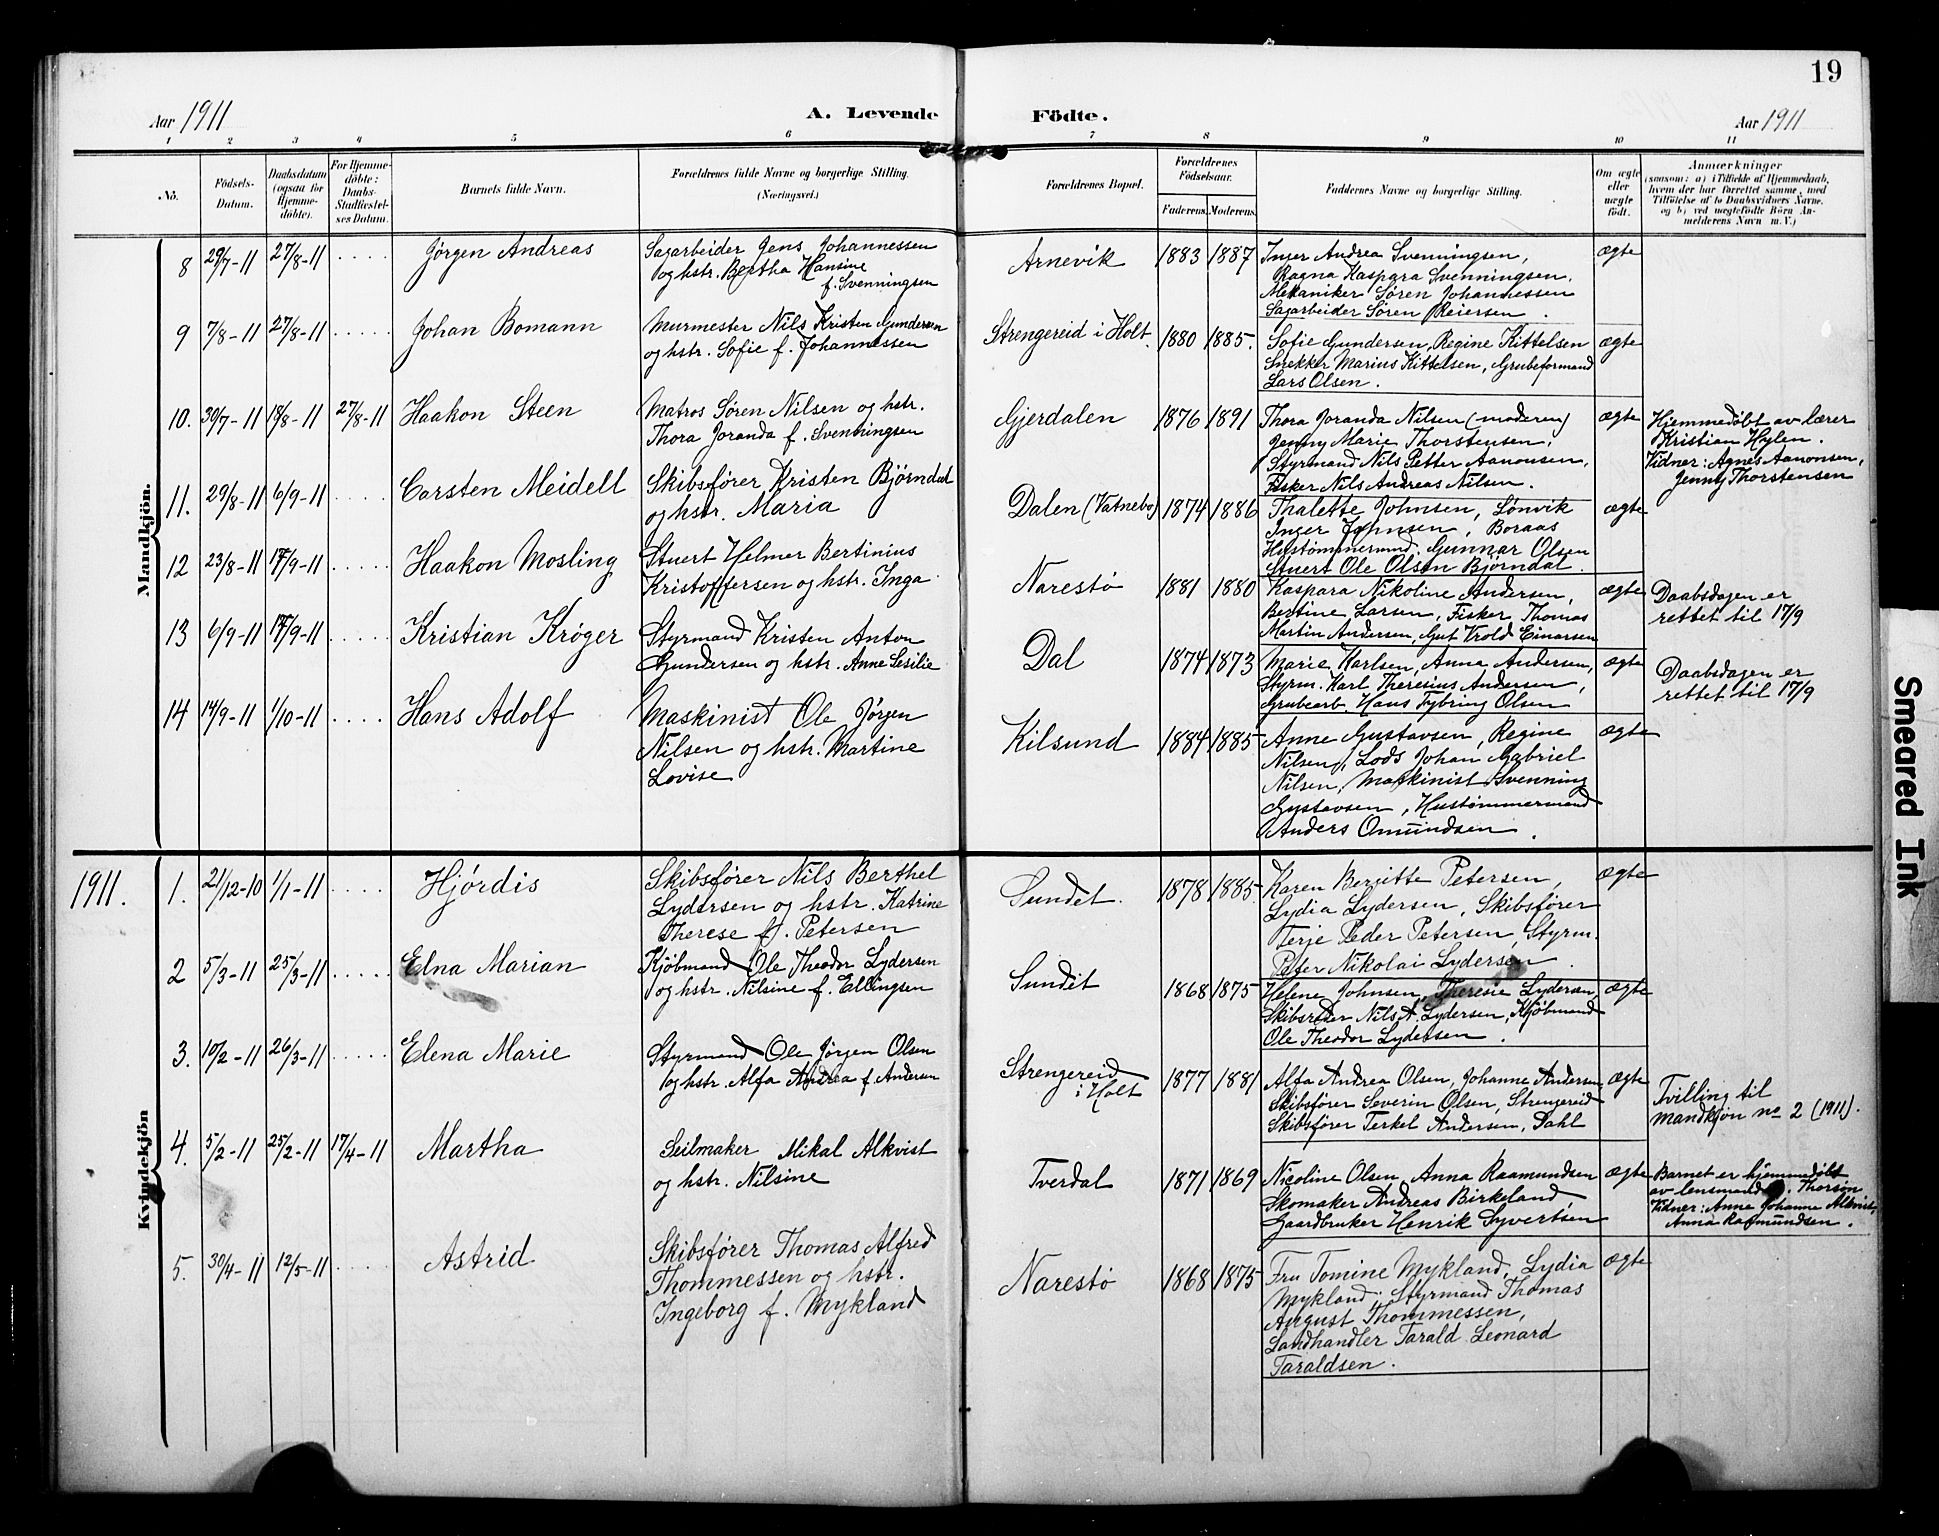 19
Aar 1911
A. Levende
Födte.
Aar 1911
1 2 3 4 5 6 7 8 9 10 11
No.
Födsels-
Datum.
Daabsdatum
(ogsaa for
Hjemme-
döbte).
For Hjemme-
döbte:
Daabs-
Stadfæstel-
ses Datum.
Barnets fulde Navn.
Forældrenes fulde Navne og borgerlige Stilling.
(Næringsvei.)
Forældrenes Bopæl.
Forældrenes
Födselsaar.
Faderens. Moderens.
Faddernes Navne og borgerlige Stilling.
Om ægte
eller
uægte
født.
Anmærkninger
(saasom: a) i Tilfælde af Hjemmedaab,
hvem der har forrettet samme, med
Tilföielse af to Daabsvidners Navne,
og b) ved uægtefödte Börn An-
melderens Navn m. V.)
Mandkjön.
8 29/7-11 27/8-11 .... Jørgen Andreas
Sagarbeider Jens Johannessen
og hstr. Bertha Hansine
f. Svenningsen
Arnevik 1883 1887
Inger Andrea Svenningsen,
Ragna Kaspara Svenningsen.
Mekaniker Søren Johannessen
Sagarbeider Søren Reiersen.
ægte
9 7/8-11 27/8-11 ..... Johan Bomann
Murmester Nils Kristen Gundersen
og hstr. Sofie f. Johannessen
Strengereid i Holt. 1880 1885.
Sofie Gundersen, Regine Kittelsen
Snekker Marius Kittelsen, Grubeformand
Lars Olsen.
ægte
10. 30/7-11 18/8-11 27/8-11 Haakon Steen
Matros Søren Nilsen og hstr.
Thora Joranda f. Svenningsen
Gjerdalen 1876 1891
Thora Joranda Nilsen (moderen)
Jenny Marie Thorstensen,
Styrmand Nils Petter Aanonsen,
Fisker Nils Andreas Nilsen.
ægte
Hjemmedøbt av lærer
Kristian Hylen.
Vidner: Agnes Aanonsen,
Jenny Thorstensen
11. 29/8-11 6/9-11 .... Carsten Meidell
Skibsfører Kristen Bjørndal
og hstr. Maria
Dalen (Vatnebo) 1874 1886
Thalette Johnsen, Sønvik
Inger Johnsen, Boraas
Hustømmermd. Gunnar Olsen
Stuert Ole Olsen Bjørndal.
ægte
12 23/8-11 17/9-11 ..... Haakon Mosling
Stuert Helmer Bertinius
Kristoffersen og hstr. Inga
Narestø 1881 1880
Kaspara Nikoline Andersen,
Bertine Larsen, Fisker Thomas
Martin Andersen, Gut Vrold Einarsen
ægte
Daabsdagen er
rettet til 17/9
13 6/9-11 17/9-11 ..... Kristian Krøger
Styrmand Kristen Anton
Gundersen og hstr. Anne Sesilie
Dal 1874 1873
Marie Karlsen, Anna Andersen,
Styrm. Karl Theresius Andersen,
Grubearb. Hans Fybring Olsen
ægte
Daabsdagen er
rettet til 17/9
14 14/9-11 1/10-11 .... Hans Adolf
Maskinist Ole Jørgen
Nilsen og hstr. Martine
Lovise
Kilsund 1884 1885
Anne Gustavsen, Regine
Nilsen, Lods Johan Gabriel
Nilsen, Maskinist Svenning
Gustavsen, Hustømmermand
Anders Omundsen.
ægte
Kvindekjön
1911.
1. 21/12-10 1/1-11 .... Hjørdis
Skibsfører Nils Berthel
Lydersen og hstr. Katrine
Therese f. Petersen
Sundet. 1878 1885.
Karen Bergitte Petersen,
Lydia Lydersen, Skibsfører
Terje Peder Petersen, Styrm.
Peter Nikolai Lydersen.
ægte
2 5/3-11 25/3-11 ..... Elna Marian
Kjøbmand Ole Theodor Lydersen
og hstr. Nilsine f. Ellingsen
Sundet 1868 1875
Helene Johnsen, Theresie Lydersen
Skibsreder Nils A. Lydersen, Kjøbmand
Ole Theodor Lydersen.
ægte
3. 10/2-11 26/3-11 ..... Elena Marie
Styrmand Ole Jørgen Olsen
og hstr. Alfa Andrea f. Andersen
Strengereid
i Holt 1877 1881
Alfa Andrea Olsen, Johanne Andersen,
Skibsfører Severin Olsen, Strengereid
Skibsfører Terkel Andersen, Dahl
ægte
Tvilling til
mandkjøn no 2 (1911).
4. 5/2-11 25/2-11 17/4-11 Martha
Seilmaker Mikal Alkvist
og hstr. Nilsine
Tverdal 1871 1869
Nicoline Olsen, Anna Raamundsen
Skomaker Andreas Birkeland
Gaardbruker Henrik Syvertsen
ægte
Barnet er hjemmedøbt
av lensmand Thorsøn
Vidner: Anne Johanne Alkvist,
Anna Raamundsen.
5. 30/4-11 12/5-11 .... Astrid
Skibsfører Thomas Alfred
Thommessen og hstr.
Ingeborg f. Mykland
Narestø 1868 1875
Fru Tomine Mykland, Lydia
Mykland. Styrmand Thomas
August Thommessen,
Landhandler Tarald Leonard
Taraldsen.
ægte
Smeared Ink